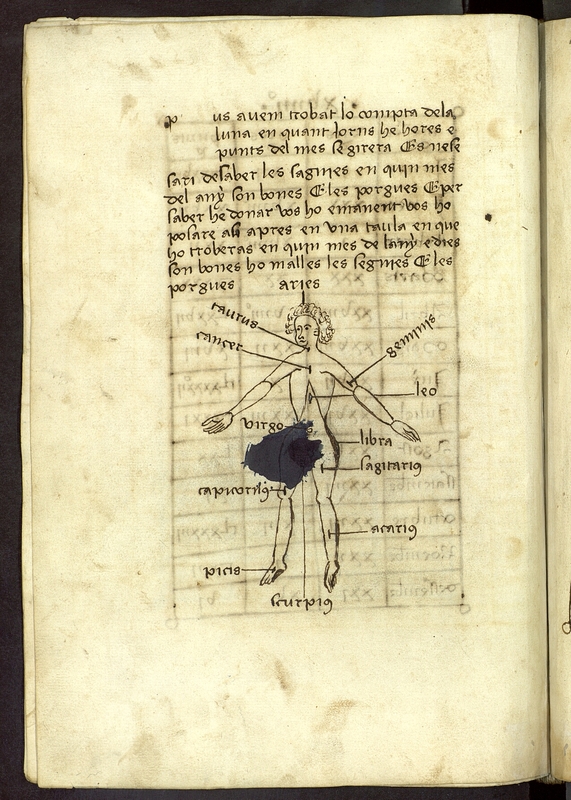 p us auem trobat lo compta dela
luna en quant Jorns he hores e
punts del mes se girera Es nese
sari desaber les sagnies en quin mes
del any son bones E les porgues E per
saber he donar vos ho emanent vos ho
posare asi apres en vna taula en que
ho troberas en quin mes de lany e dies
son bones ho malles les segnies E les
porgues
aries
taurus
cancer
geminis
leo
virgo
libra
sagitariꝯ
capicorniꝯ
acariꝯ
picis
scurpiꝯ